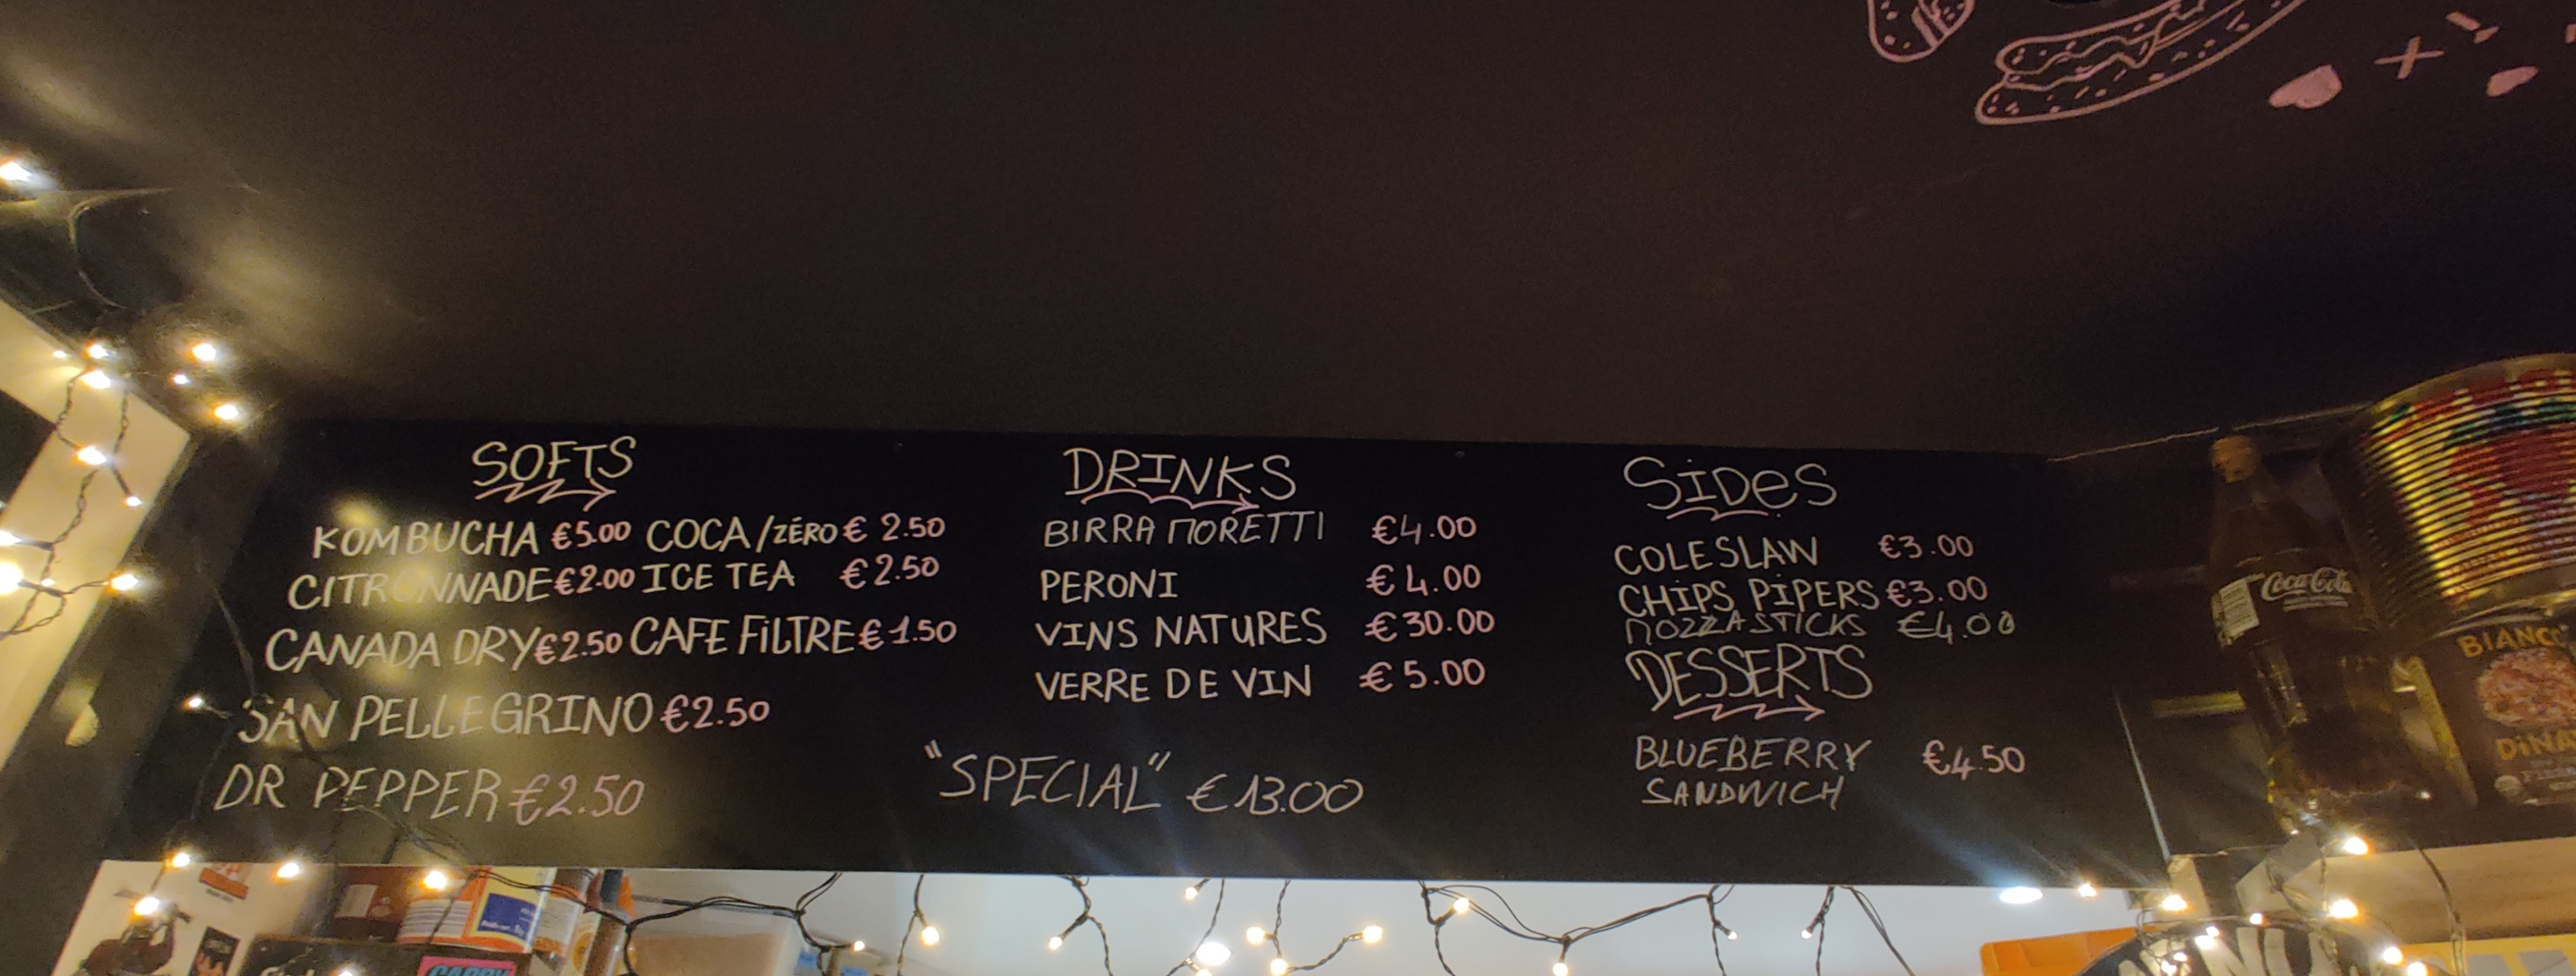 SOFTS
KOMBUCHA €5.00 COCA/ZÉRO € 2.50
CITRONNADE €2.00 ICE TEA €2.50
CANADA DRY €2.50 CAFE FILTRE €1.50
SAN PELLEGRINO €2.50
DR PEPPER €2.50
DRINKS
BIRRA MORETTI €4.00
PERONI €4.00
VINS NATURES €30.00
VERRE DE VIN €5.00
"SPECIAL" €13.00
SIDES
COLESLAW €3.00
CHIPS PIPERS €3.00
MOZZASTICKS €4.00
DESSERTS
BLUEBERRY €4.50
SANDWICH
Coca-Cola